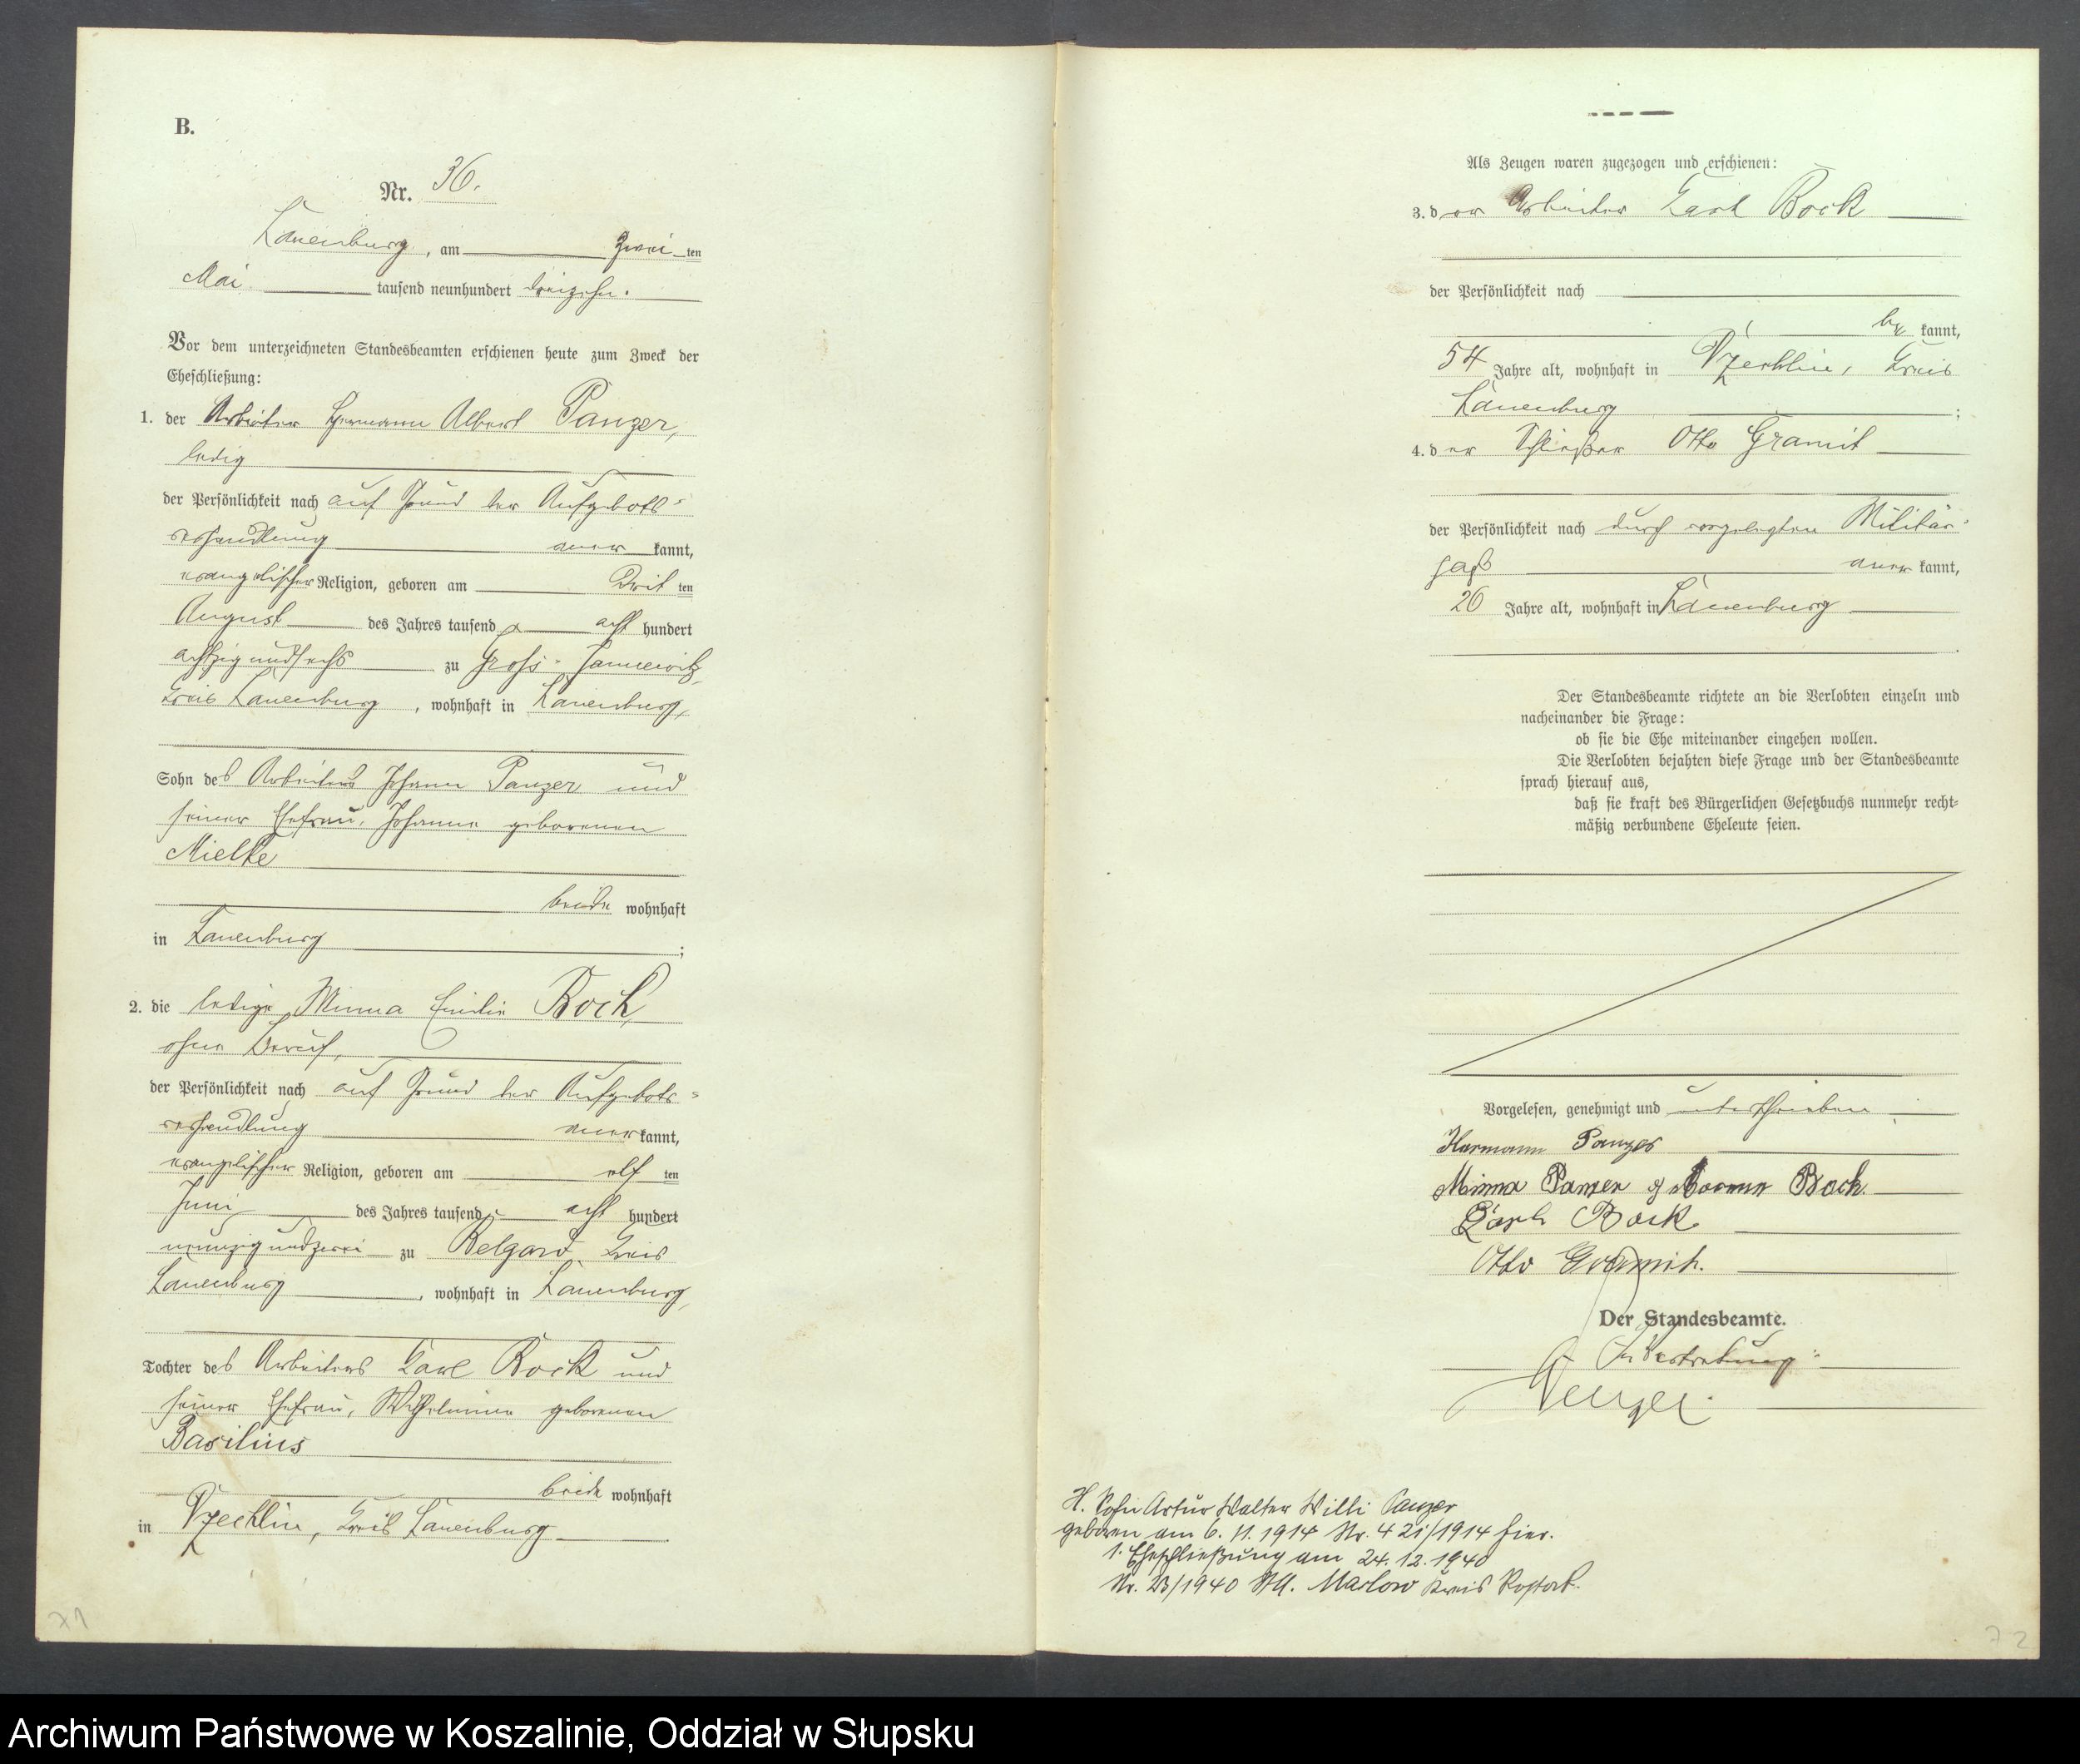 B.
Nr. 36.
Lauenburg, am zweiten
Mai tausend neunhundert dreizehn.
Vor dem unterzeichneten Standesbeamten erschienen heute zum Zweck der
Eheschließung:
1. der Arbeiter Hermann Albert Panzer,
ledig
der Persönlichkeit nach auf Grund der Aufgebots-
verhandlung anerkannt,
evangelischer Religion, geboren am dritten
August des Jahres tausend acht hundert
achtzigundsechs zu Groß-Jannewitz,
Kreis Lauenburg, wohnhaft in Lauenburg,
Sohn des Arbeiters Johann Panzer und
seiner Ehefrau, Johanne geborenen
Mielke
beide wohnhaft
in Lauenburg;
2. die ledige Minna Emilie Bock,
ohne Beruf,
der Persönlichkeit nach auf Grund der Aufgebots-
verhandlung anerkannt,
evangelischer Religion, geboren am elften
Juni des Jahres tausend acht hundert
neunzigundzwei zu Belgard Kreis
Lauenburg, wohnhaft in Lauenburg,
Tochter des Arbeiters Karl Bock und
seiner Ehefrau, Wilhelmine geborenen
Basilius
beide wohnhaft
in Vzechlin, Kreis Lauenburg
71
Als Zeugen waren zugezogen und erschienen:
3. der Arbeiter Karl Bock
der Persönlichkeit nach
bekannt,
54 Jahre alt, wohnhaft in Vzechlin, Kreis
Lauenburg;
4. der Schließer Otto Gramit
der Persönlichkeit nach durch vorgelegten Militär-
paß anerkannt,
26 Jahre alt, wohnhaft in Lauenburg
Der Standesbeamte richtete an die Verlobten einzeln und
nacheinander die Frage:
ob sie die Ehe miteinander eingehen wollen.
Die Verlobten bejahten diese Frage und der Standesbeamte
sprach hierauf aus,
daß sie kraft des Bürgerlichen Gesetzbuchs nunmehr recht-
mäßig verbundene Eheleute seien.
Vorgelesen, genehmigt und unterschrieben
Hermann Panzer
Minna Panzer geborene Bock.
Karl Bock
Otto Gramit.
Der Standesbeamte.
In Vertretung:
H. Sohn Artur Walter Willi Panzer
geboren am 6. 11. 1914 Nr. 421/1914 hier.
1. Eheschließung am 24. 12. 1940
Nr. 23/1940 StA. Marlow Kreis Rostock.
72
Archiwum Państwowe w Koszalinie, Oddział w Słupsku